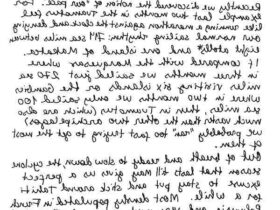 we discovered the of our pace. For
example last two months in the Tuamotus felt
like running a marathon against the clock and denying
our normal sailing rhythm. sea miles between
eight atolls and one island of Makatea
If compared with the Marquesas where
in three months we sailed just 270 sea
miles visiting six islands or the Gambier
where in two months we only sailed 100
sea miles, then in Tuamotus (which are also
much vaster than the other two archipelagos)
we probably "ran" too fast trying to get the most
of them.
Out of breath and ready to slow down the cyclone
season that last till May give us a perfect
excuse to stay put and stick around Tahiti
for a while. Most densely populated in French